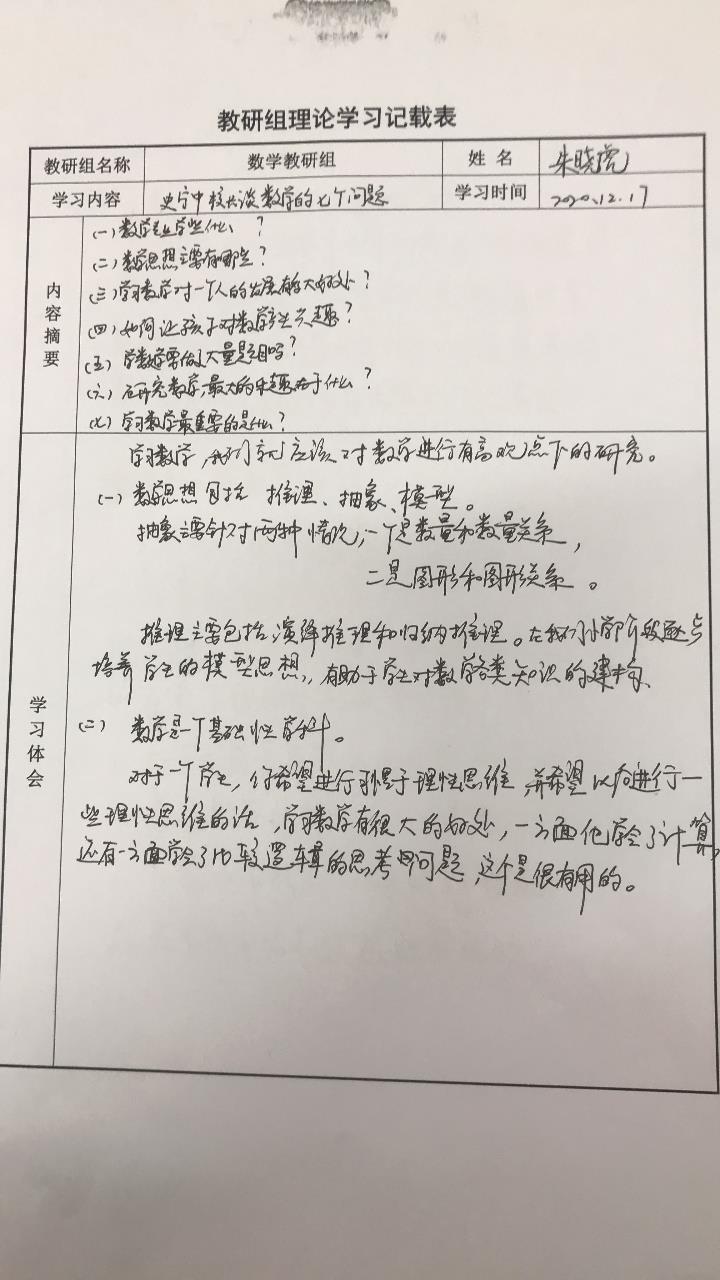 教研组理论学习记载表
教研组名称 数学教研组 姓 名 朱晓虎
学习内容 史宁中校长谈数学的七个问题 学习时间 2020.12.17
内容摘要
(一)数学专业学些什么?
(二)数学思想主要有哪些?
(三)学习数学对一个人的发展有多大的好处?
(四)如何让孩子对数学产生兴趣?
(五)学数学要做大量题目吗?
(六)在研究数学,最大的乐趣在于什么?
(七)学习数学最重要的是什么?
学习体会
学习数学,我们就应该对数学进行有高观点下的研究。
(一)数学思想包括 推理、抽象、模型。
抽象主要针对两种情况,一个是数量和数量关系,
二是图形和图形关系。
推理主要包括演绎推理和归纳推理。在我们小学阶段逐步
培养学生的模型思想,有助于学生对数学各类知识的建构
(二) 数学是一个基础性学科。
对于一个学生,你希望进行习惯于理性思维,并希望以后进行一
些理性思维的话,学习数学有很大的好处,一方面他学会了计算,
还有一方面学会了比较逻辑的思考问题,这个是很有用的。